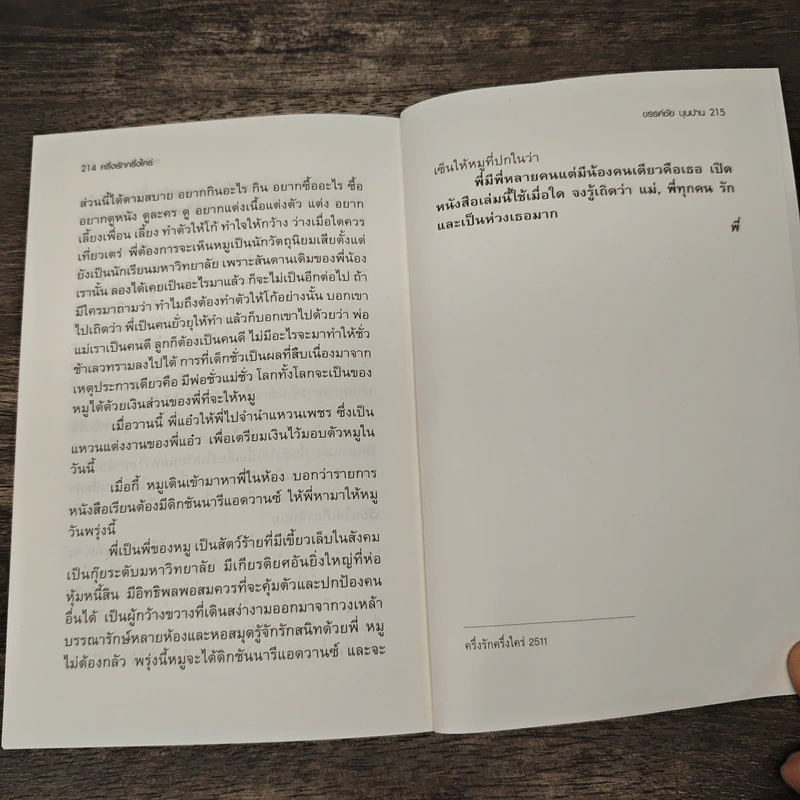 214 ครึ่งรักครึ่งใคร่
ส่วนนี้ได้ตามสบาย อยากกินอะไร กิน อยากซื้ออะไร ซื้อ
อยากดูหนัง ดูละคร ดู อยากแต่งเนื้อแต่งตัว แต่ง อยาก
เลี้ยงเพื่อน เลี้ยง ทำตัวให้โก้ ทำใจให้กว้าง ว่างเมื่อใดควร
เที่ยวเตร่ พี่ต้องการจะเห็นหมูเป็นนักวัตถุนิยมเสียตั้งแต่
ยังเป็นนักเรียนมหาวิทยาลัย เพราะสันดานเดิมของพี่น้อง
เรานั้น ลองได้เคยเป็นอะไรมาแล้ว ก็จะไม่เป็นอีกต่อไป ถ้า
มีใครมาถามว่า ทำไมถึงต้องทำตัวให้โก้อย่างนั้น บอกเขา
ไปเถิดว่า พี่เป็นคนยั่วยุให้ทำ แล้วก็บอกเขาไปด้วยว่า พ่อ
แม่เราเป็นคนดี ลูกก็ต้องเป็นคนดี ไม่มีอะไรจะมาทำให้ชั่ว
ช้าเลวทรามลงไปได้ การที่เด็กชั่วเป็นผลที่สืบเนื่องมาจาก
เหตุประการเดียวคือ มีพ่อชั่วแม่ชั่ว โลกทั้งโลกจะเป็นของ
หมูได้ด้วยเงินส่วนของพี่ที่จะให้หมู
เมื่อวานนี้ พี่แอ๋วให้พี่ไปจำนำแหวนเพชร ซึ่งเป็น
แหวนแต่งงานของพี่แอ๋ว เพื่อเตรียมเงินไว้มอบตัวหมูใน
วันนี้
เมื่อกี้ หมูเดินเข้ามาหาพี่ในห้อง บอกว่ารายการ
หนังสือเรียนต้องมีดิกชันนารีแอดวานซ์ ให้พี่หามาให้หมู
วันพรุ่งนี้
พี่เป็นพี่ของหมู เป็นสัตว์ร้ายที่มีเขี้ยวเล็บในสังคม
เป็นกุ๊ยระดับมหาวิทยาลัย มีเกียรติยศอันยิ่งใหญ่ที่ห่อ
หุ้มหนี้สิน มีอิทธิพลพอสมควรที่จะคุ้มตัวและปกป้องคน
อื่นได้ เป็นผู้กว้างขวางที่เดินสง่างามออกมาจากวงเหล้า
บรรณารักษ์หลายห้องและหอสมุดรู้จักรักสนิทด้วยพี่ หมู
ไม่ต้องกลัว พรุ่งนี้หมูจะได้ดิกชันนารีแอดวานซ์ และจะ
ขรรค์ชัย บุนปาน 215
เซ็นให้หมูที่ปกในว่า
พี่มีพี่หลายคนแต่มีน้องคนเดียวคือเธอ เปิด
หนังสือเล่มนี้ใช้เมื่อใด จงรู้เถิดว่า แม่, พี่ทุกคน รัก
และเป็นห่วงเธอมาก
พี่
ครึ่งรักครึ่งใคร่ 2511